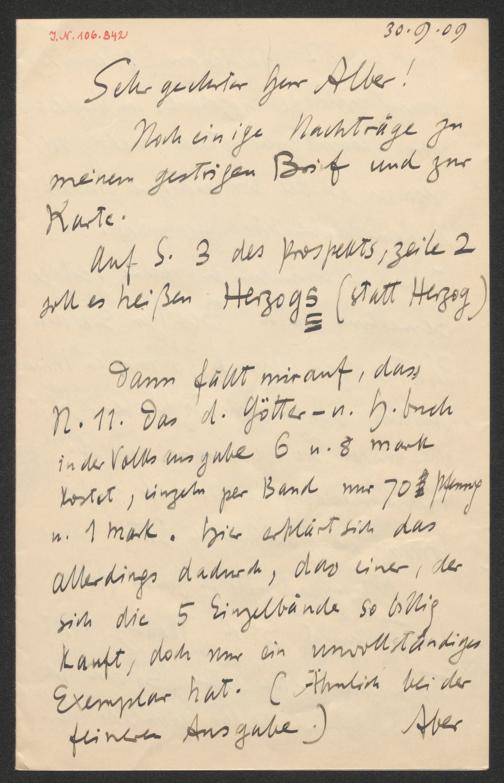 J.N. 106.842
30.9.09
Sehr geehrter Herr Alber!
Noch einige Nachträge zu
meinem gestrigen Brief und zur
Karte.
Auf S. 3 des Prospekts, zeile 2
soll es heißen Herzogs (statt Herzog)
Dann fällt mir auf, dass
N. 11. Das d. Götter- u. H. buch
in der Volksausgabe 6 u. 8 Mark
kostet, einzeln per Band nur 70 Pfennig
u. 1 Mark. hier erklärt sich das
allerdings dadurch, dass einer, der
sich die 5 Einzelbände so billig
kauft, doch nur ein unvollständiges
Exemplar hat. (Ähnlich bei der
feineren Ausgabe.) Aber